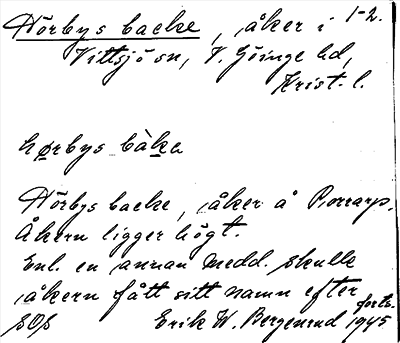 Hörbys backe, åker i 1-2.
Vittsjö sn, V. Göinge hd,
Krist. l.
hørbys bàka
Hörbys backe, åker å Porrarp.
Åkern ligger högt.
Enl. en annan medd. skulle
åkern fått sitt namn efter
forts.
SOS Erik W. Bergenrud 1945